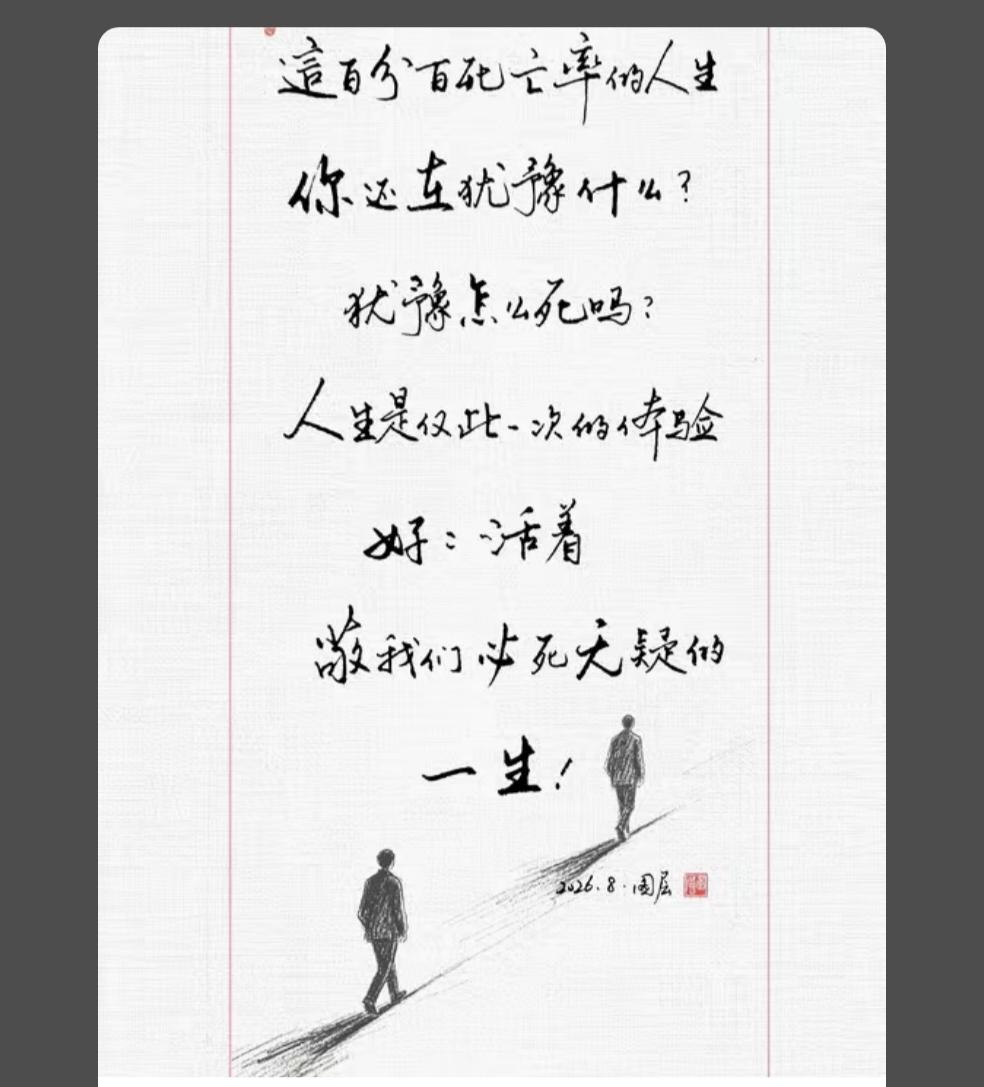 這百分百死亡率的人生
你还在犹豫什么?
犹豫怎么死吗?
人生是仅此一次的体验
好:活着
敬我们必死无疑的
一生!
2026.8.国层